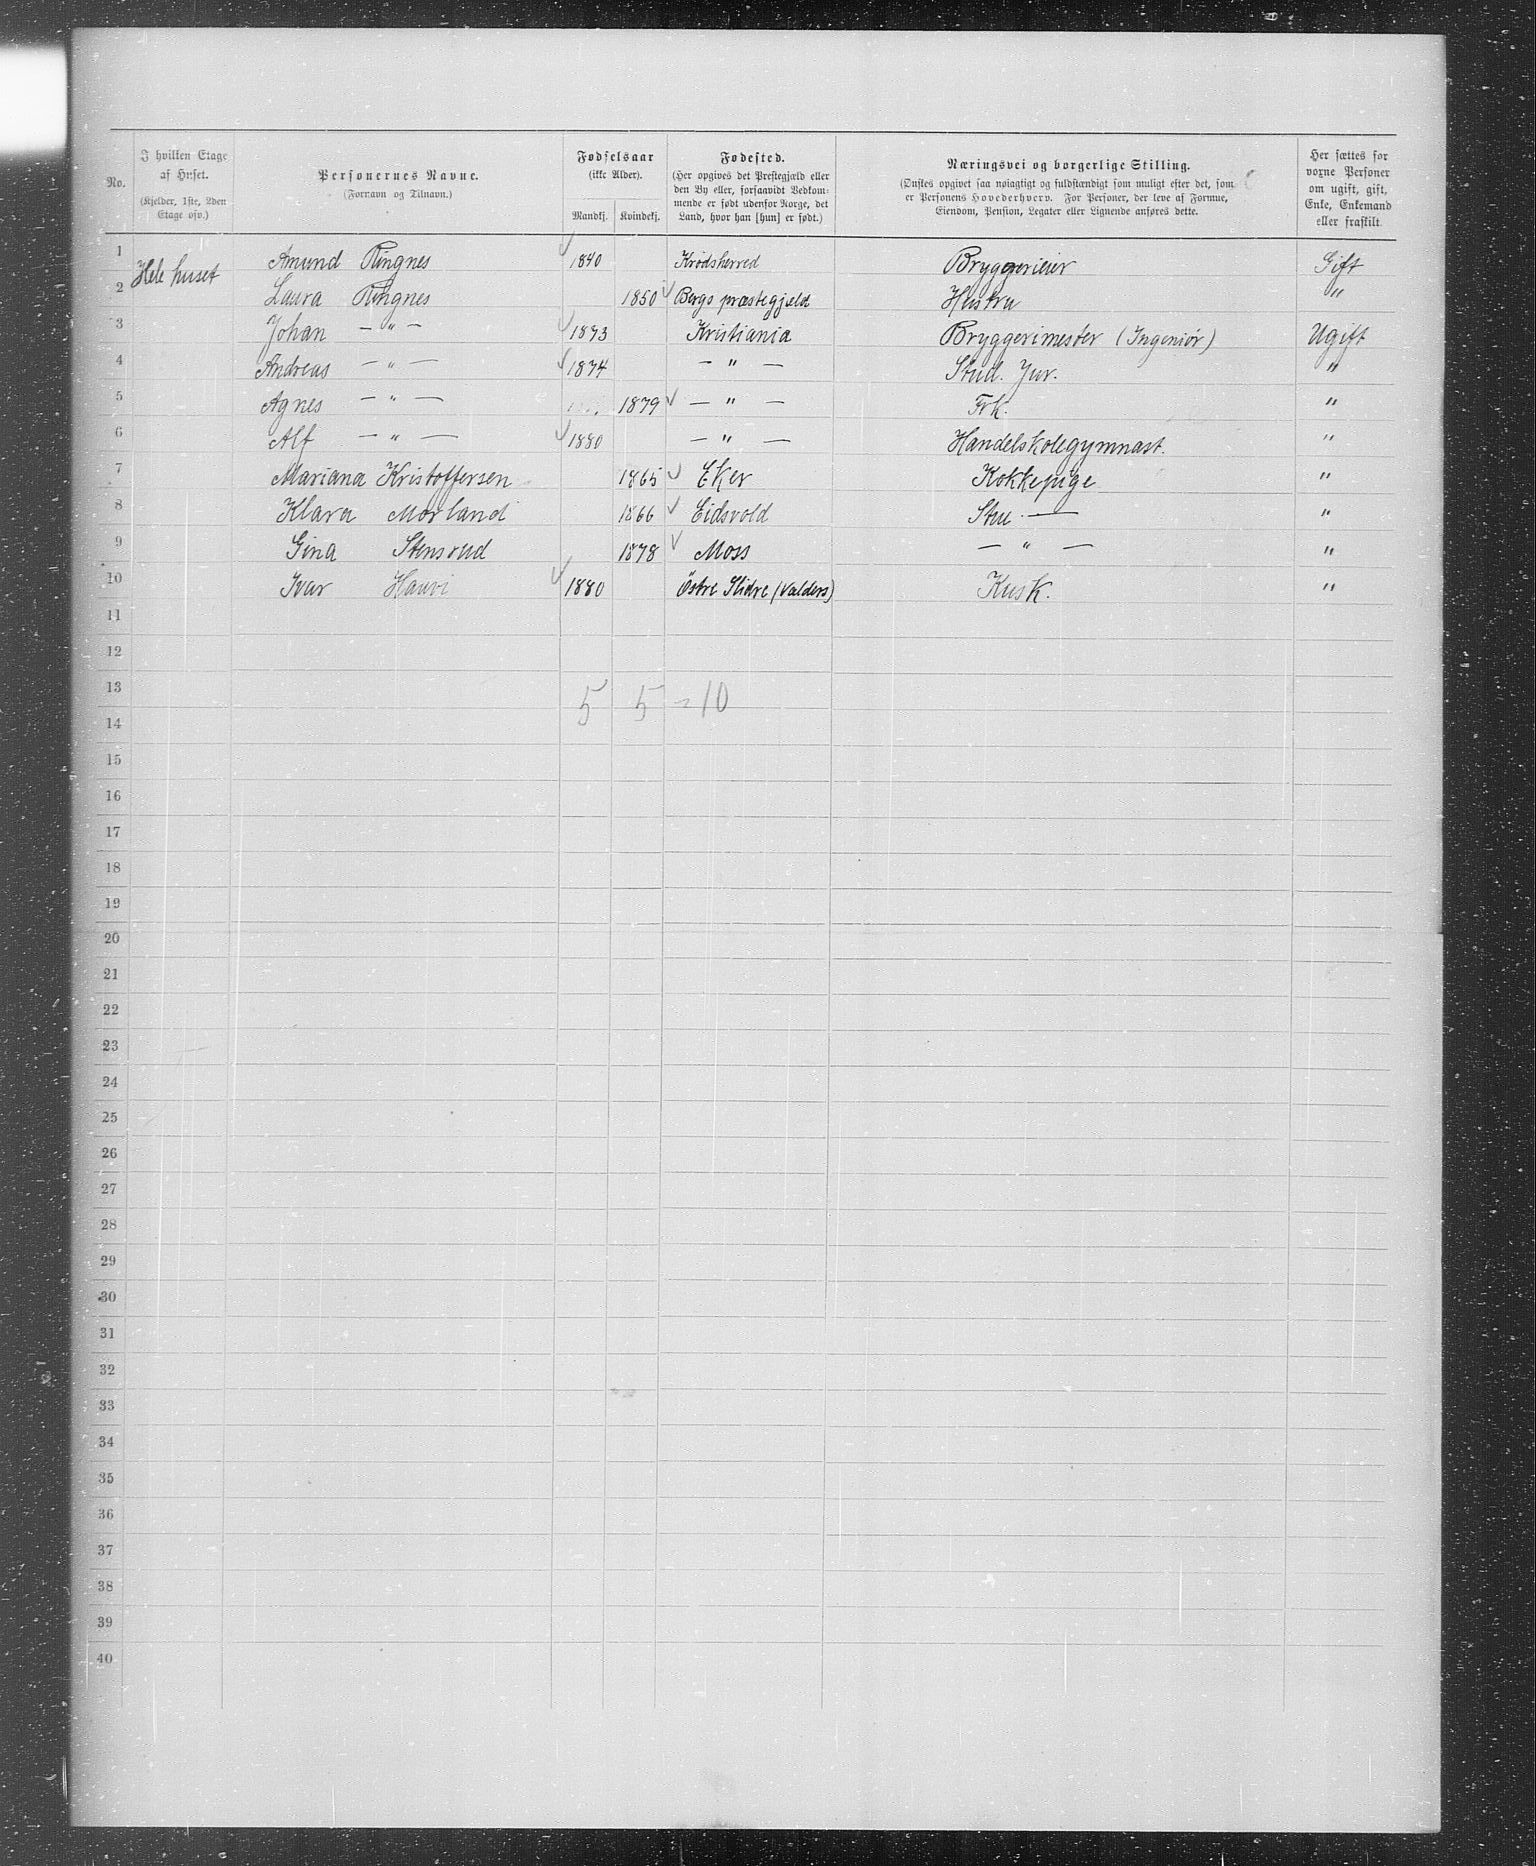 No. | I hvilken Etage af Huset. (Kjelder, 1ste, 2den Etage osv.) | Personernes Navne. (Fornavn og Tilnavn.) | Fødselsaar (ikke Alder). Mandkj. | Kvindekj. | Fødested. (Her opgives det Prestegjæld eller den By eller, forsaavidt Vedkommende er født udenfor Norge, det Land, hvor han [hun] er født.) | Næringsvei og borgerlige Stilling. (Ønskes opgivet saa nøiagtigt og fuldstændigt som muligt efter det, som er Personens Hovederhverv. For Personer, der leve af Formue, Eiendom, Pension, Legater eller Lignende anføres dette. | Her sættes for voxne Personer om ugift, gift, Enke, Enkemand eller fraskilt.
1 | Hele huset | Amund Ringnes | 1840 | | Krødsherred | Bryggerieier | Gift
2 | | Laura Ringnes | | 1850 | Bergs præstegjæld | Hustru | "
3 | | Johan — " — | 1873 | | Kristiania | Bryggerimester (Ingeniør) | Ugift
4 | | Andreas — " — | 1874 | | — " — | Stud. Jur. | "
5 | | Agnes — " — | | 1879 | — " — | Frk. | "
6 | | Alf — " — | 1880 | | — " — | Handelskolegymnast. | "
7 | | Mariana Kristoffersen | | 1865 | Eker | Kokkepige | "
8 | | Klara Morland | | 1866 | Eidsvold | Stue — | "
9 | | Gina Stensrud | | 1878 | Moss | — " — | "
10 | | Ivar Hauvi | 1880 | | Östre Slidre (Valders) | Kusk. | "
11
12
13
5 5 = 10
14
15
16
17
18
19
20
21
22
23
24
25
26
27
28
29
30
31
32
33
34
35
36
37
38
39
40